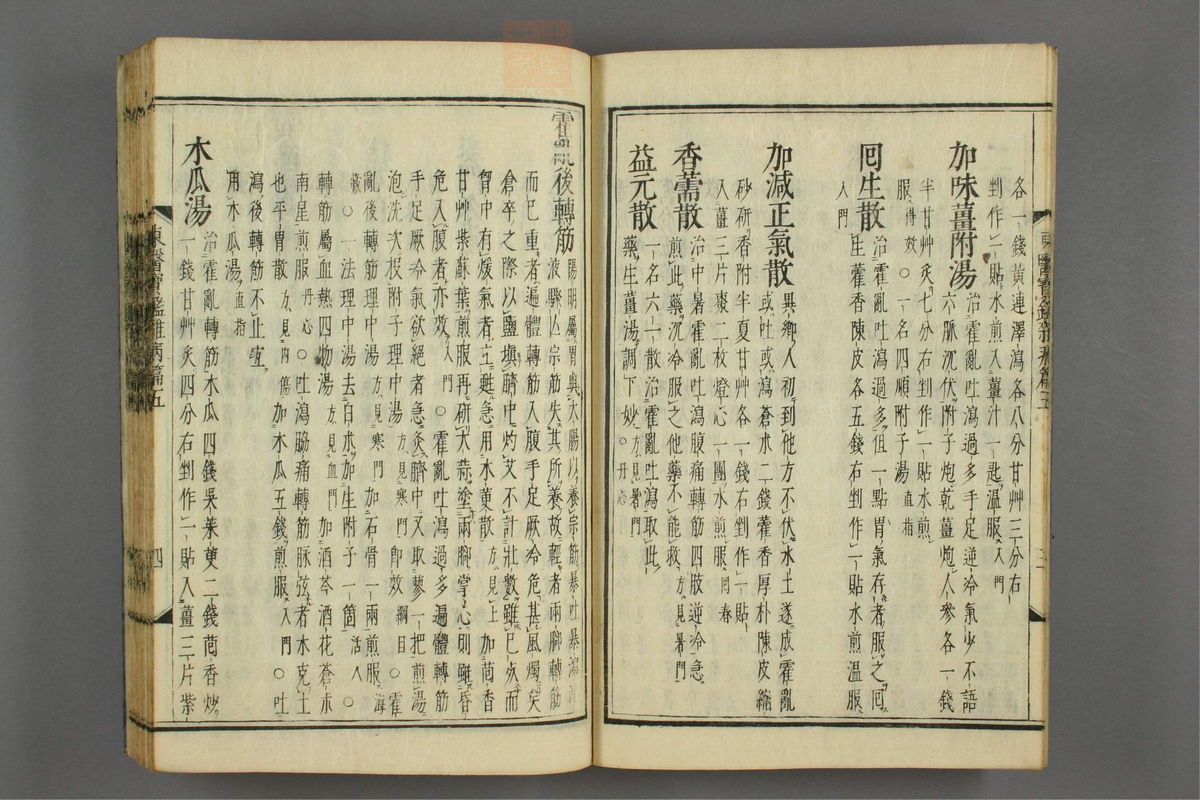 各一錢黃連澤瀉各八分甘艸三分右
剉作一貼水煎入薑汁一匙溫服入門
加味薑附湯 治霍亂吐瀉過多手足逆冷氣少不語
六脈沉伏附子炮乾薑炮人參各一錢
半甘艸炙七分右剉作一貼水煎
服得效○一名四順附子湯直指
回生散 治霍亂吐瀉過多但一點胃氣存者服之回
生藿香陳皮各五錢右剉作一貼水煎溫服
入門
加減正氣散 異鄉人初到他方不伏水土遂成霍亂
或吐或瀉蒼朮二錢藿香厚朴陳皮縮
砂研香附半夏甘艸各一錢右剉作一貼
入薑三片棗二枚燈心一團水煎服回春
香薷散 治中暑霍亂吐瀉腹痛轉筋四肢逆冷急
煎此藥沉冷服之他藥不能救方見暑門
益元散 一名六一散治霍亂吐瀉取此
藥生薑湯調下妙方見暑門○丹心
霍亂後轉筋 陽明屬胃與大陽以養宗筋暴吐暴瀉
液驟亡宗筋失其所養故輕者兩脚轉筋
而已重者遍體轉筋入腹手足厥冷危甚風燭矣
倉卒之際以鹽塡臍中灼艾不計壯數雖已死而
胷中有煖氣者立甦急用水萸散方見上加茴香
甘艸紫蘇葉煎服再研大蒜塗兩腳掌心則雖昏
危入腹者亦效入門○霍亂吐瀉過多遍體轉筋
手足厥冷氣欲絕者急灸臍中又取蓼一把煎湯
泡洗次投附子理中湯方見寒門卽效綱目○霍
亂後轉筋理中湯方見寒門加石膏一兩煎服海
藏○一法理中湯去白朮加生附子一箇活人○
轉筋屬血熱四物湯方見血門加酒芩酒花蒼朮
南星煎服丹心○吐瀉脇痛轉筋脉弦者木克土
也平胃散方見內傷加木瓜五錢煎服入門○吐
瀉後轉筋不止宜
用木瓜湯直指
木瓜湯 治霍亂轉筋木瓜四錢吳茱萸二錢茴香炒
一錢甘艸炙四分右剉作一貼入薑三片紫
東醫寶鑑雜病篇五
四